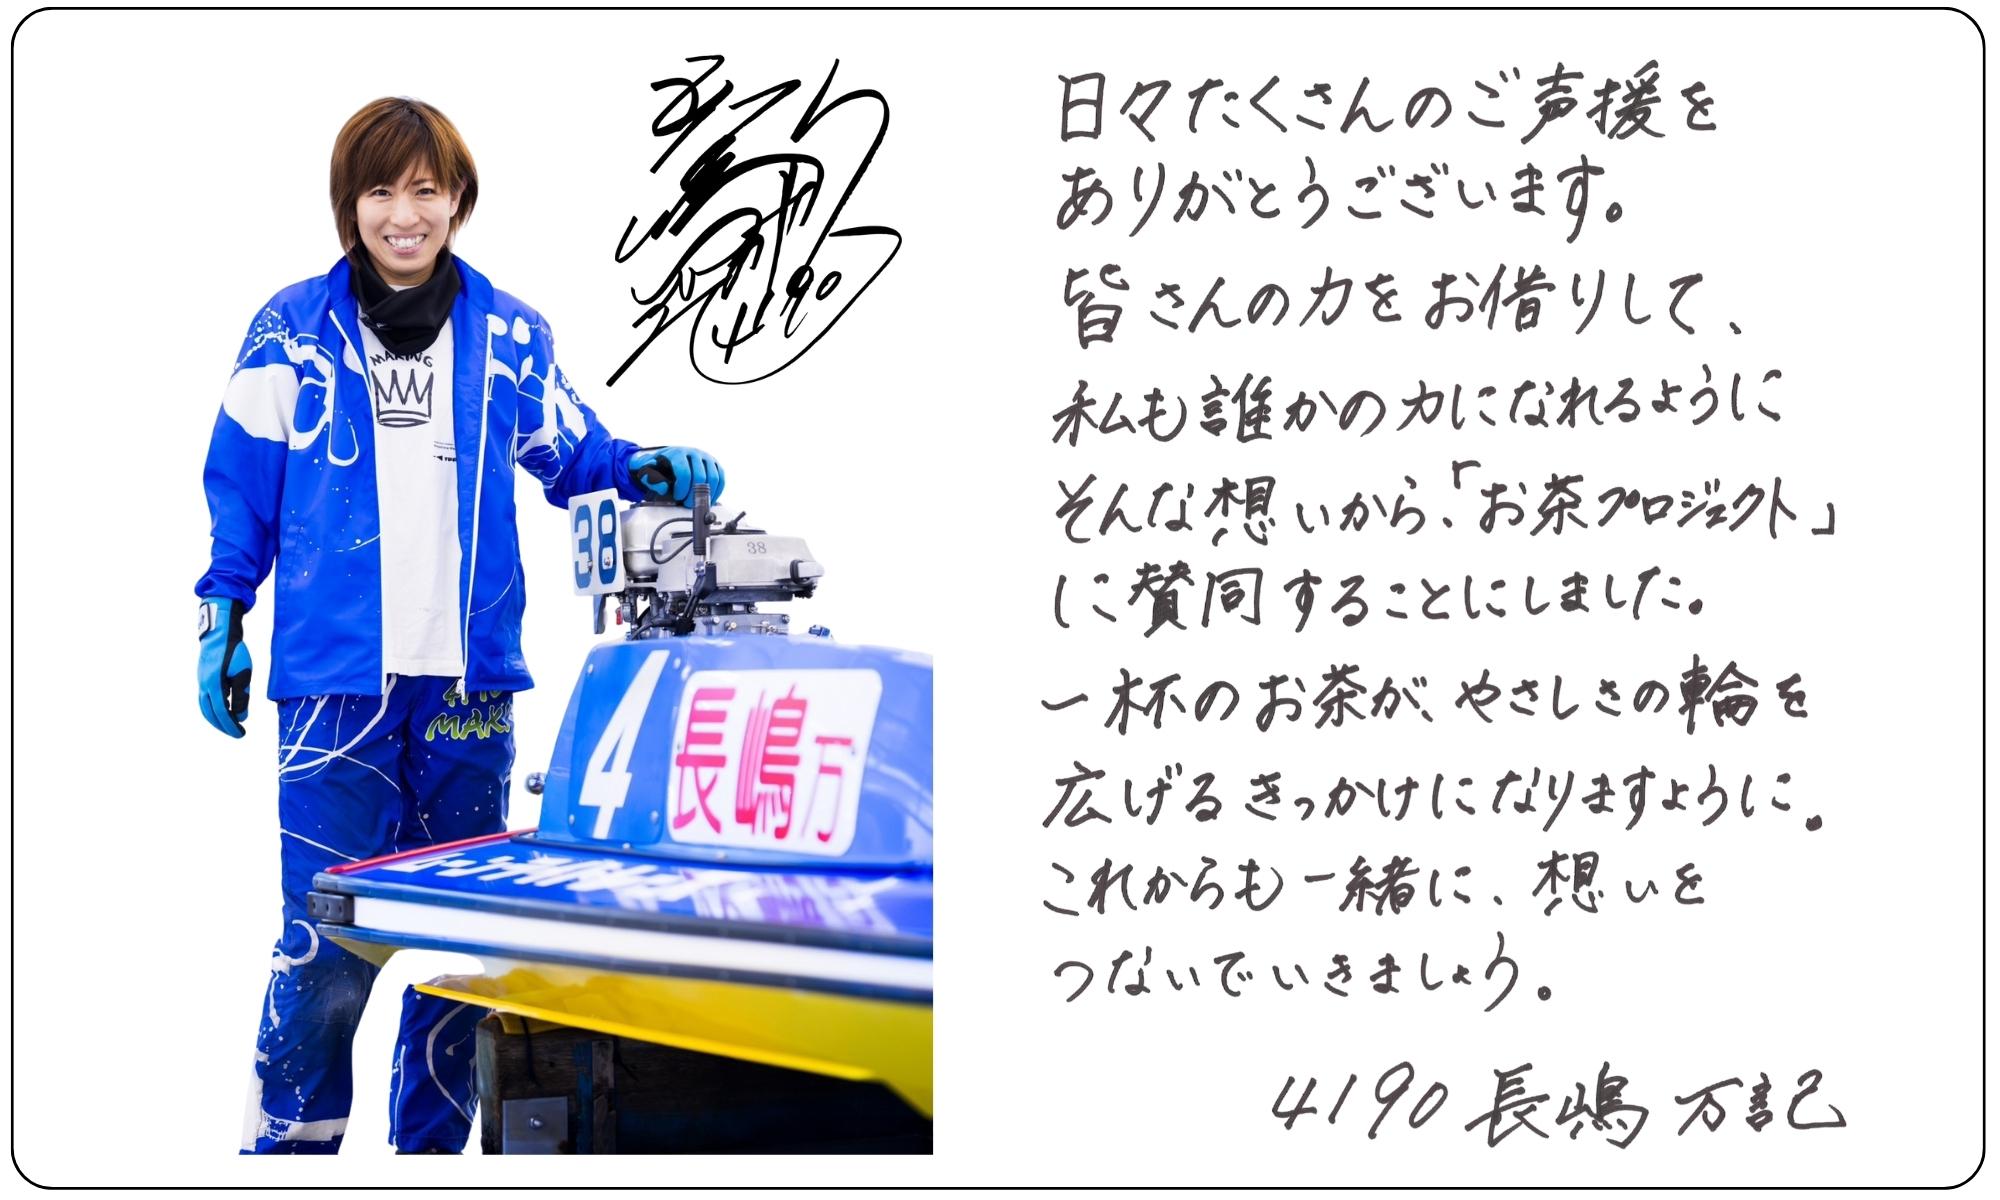 日々たくさんのご声援を
ありがとうございます。
皆さんの力をお借りして、
私も誰かの力になれるように
そんな想いから、「お茶プロジェクト」
に賛同することにしました。
一杯のお茶が、やさしさの輪を
広げるきっかけになりますように。
これからも一緒に、想いを
つないでいきましょう。
4190 長嶋 万記
4190
MAKING
38
38
4190
MAK
4 長嶋万